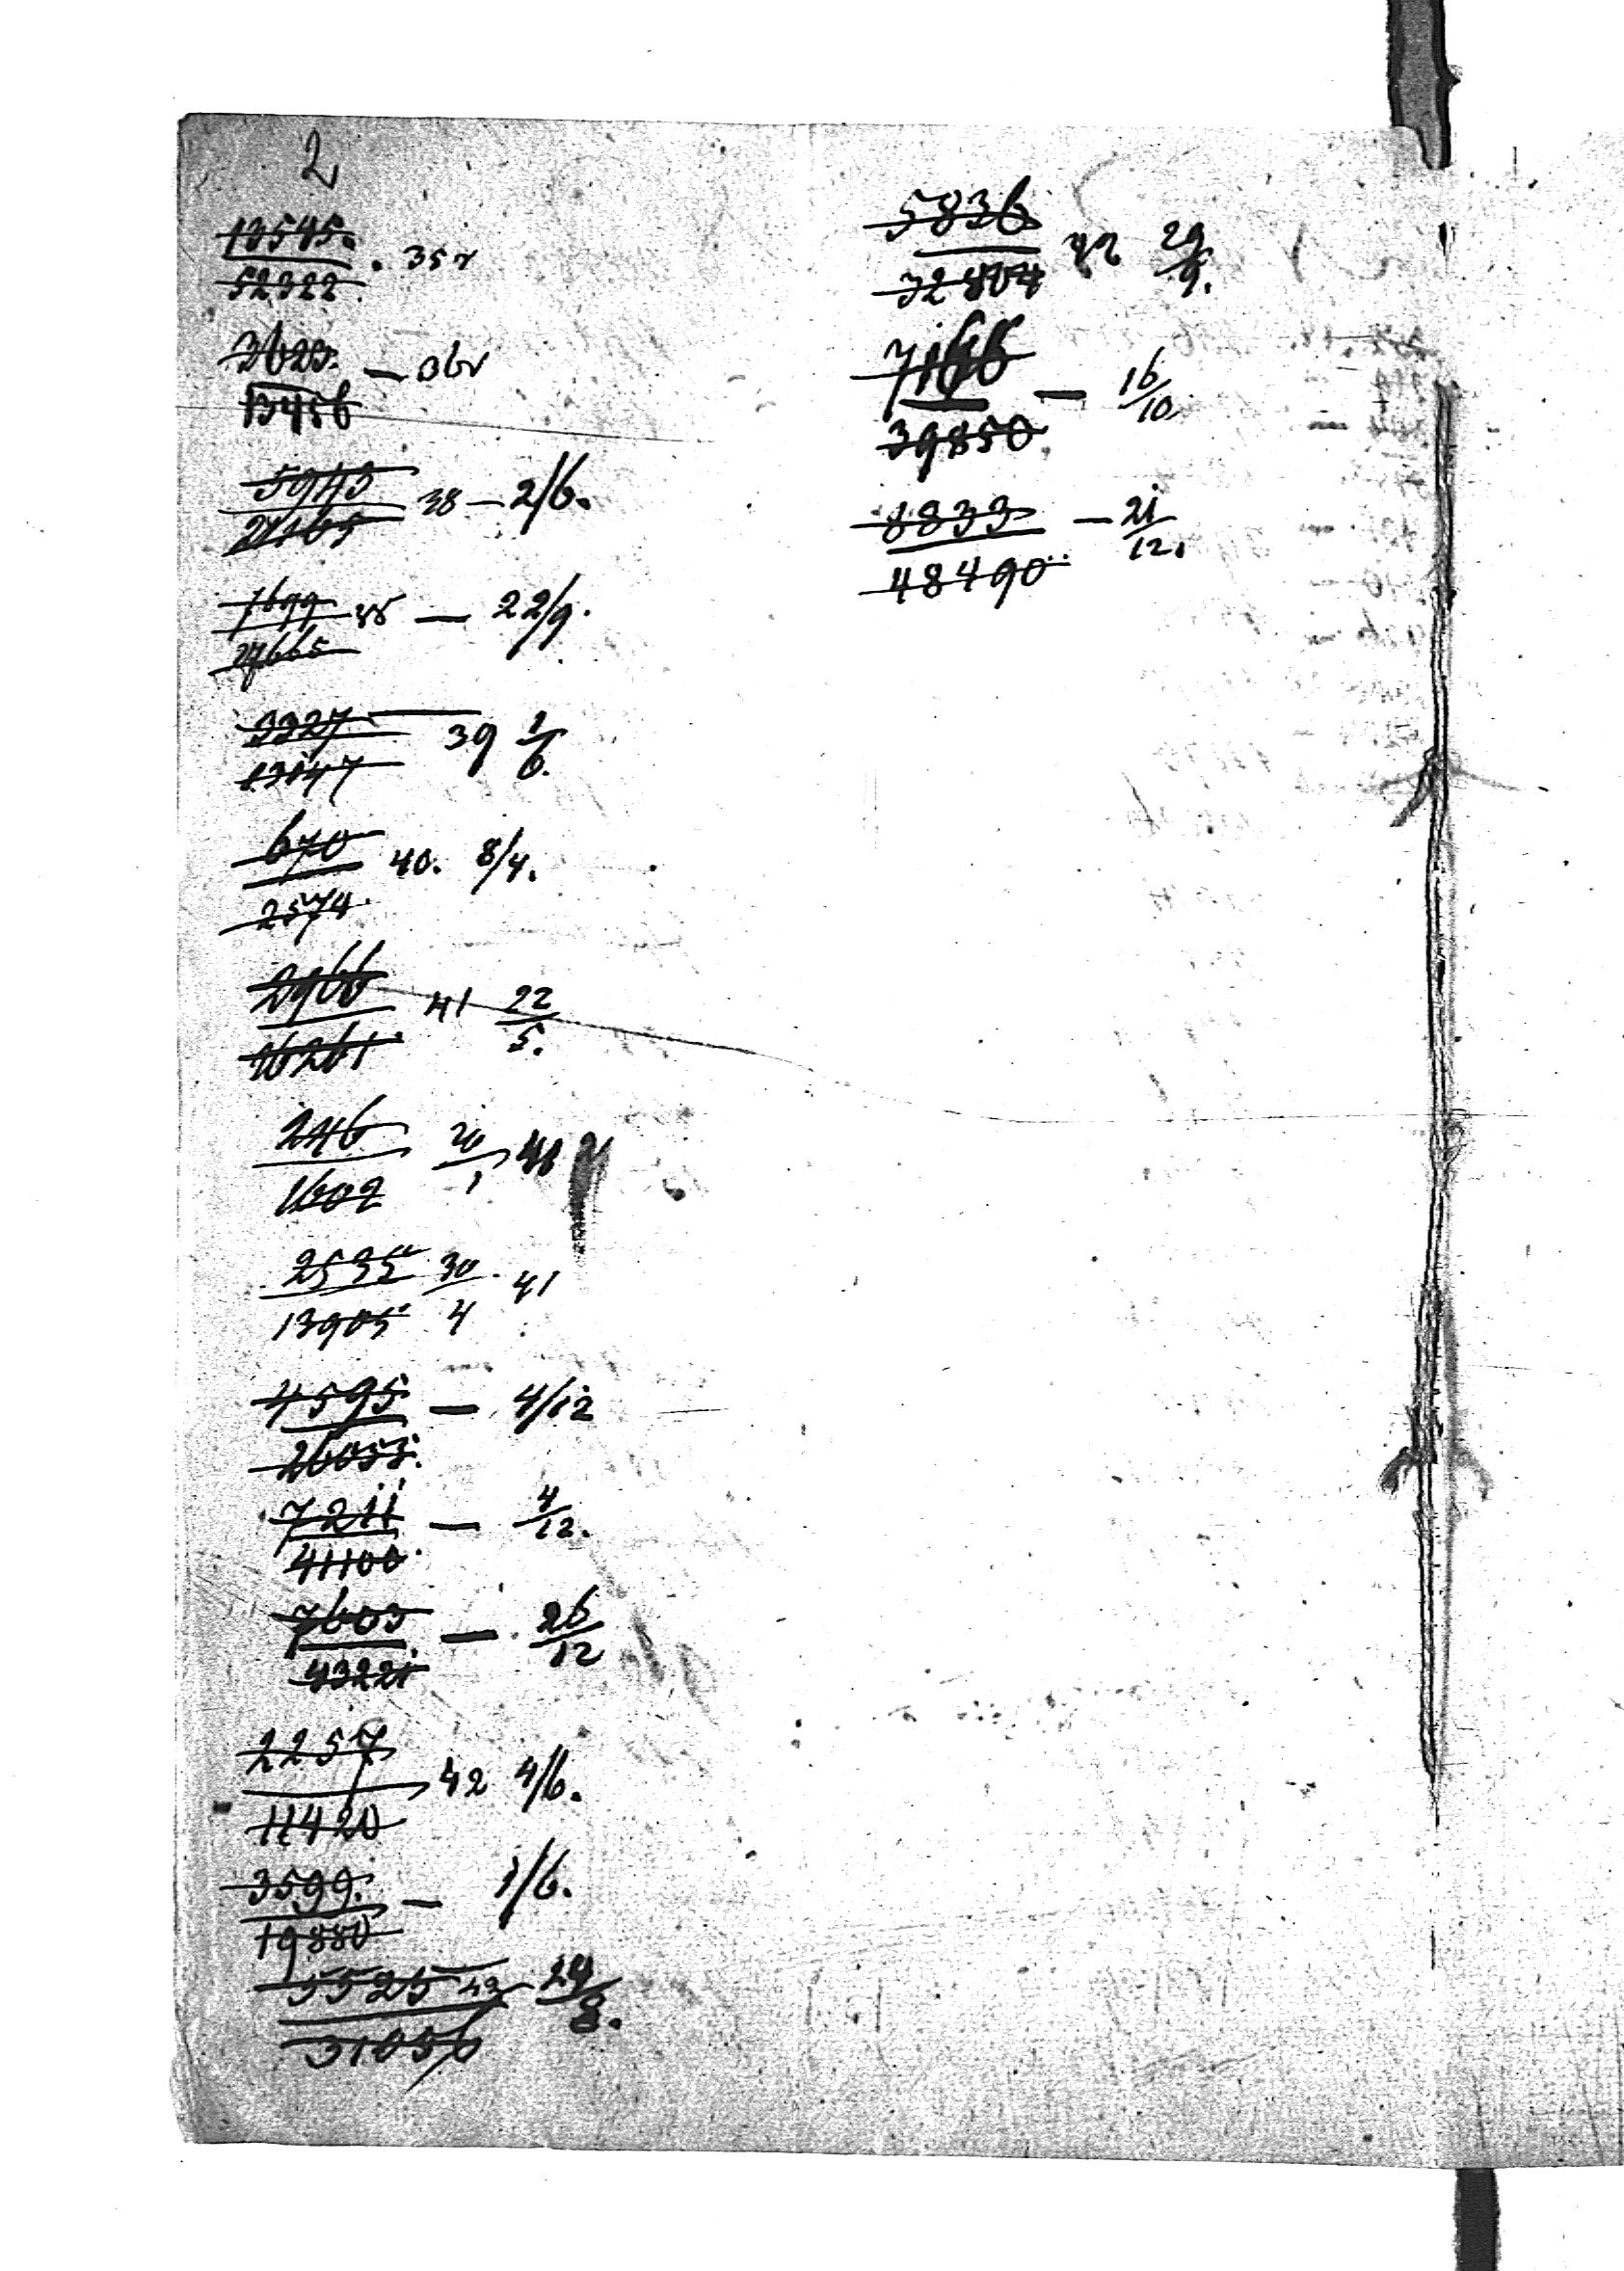 2
13545.
52322 . 35 г
3623. — 36г
13456
5943
21165 38 — 2/6.
7699
27665 38 — 22/9.
3327
13147 39 1/6.
670
2574 40. 8/4.
2966
16261 41 22/5.
246
1602 20/1 41
2535
13905 30/4 41
4595 — 4/12
26055.
7211 — 4/12.
41100
7603 — 26/12
43221
2257
11420 42 4/6.
3599. — 1/6.
19880
5525 42 24/8.
31056
5836
32804 42 29/9.
7166 — 16/10
39850
8833 — 21/12.
48490